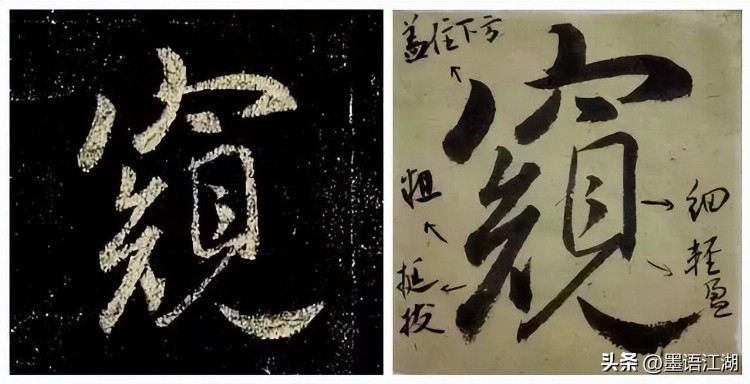 窺
窺
盖住下方
粗
挺拔
细
輕盈
头条 @墨语江湖